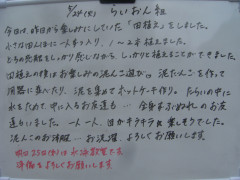 5/24(火) らいおん組
今日は昨日から楽しみにしていた「田植え」をしました。
大きな田んぼに一人ずつ入り、1〜2本植えました。
どろの感触をしっかり感じながら、しっかりと植えることができました。
田植えの後はお楽しみの泥んこ遊び。泥だんごを作って
固器に並べたり、泥を集めてホットケーキ作り。たらいの中に
水をためて、中に入るお友達も… 全身まみれのお友
達もいました。一人一人、目がキラキラと楽しそうでした。
泥んこのお洋服… お洗濯、よろしくお願いします
明日25日(水)は水泳教室です
準備をよろしくお願いします